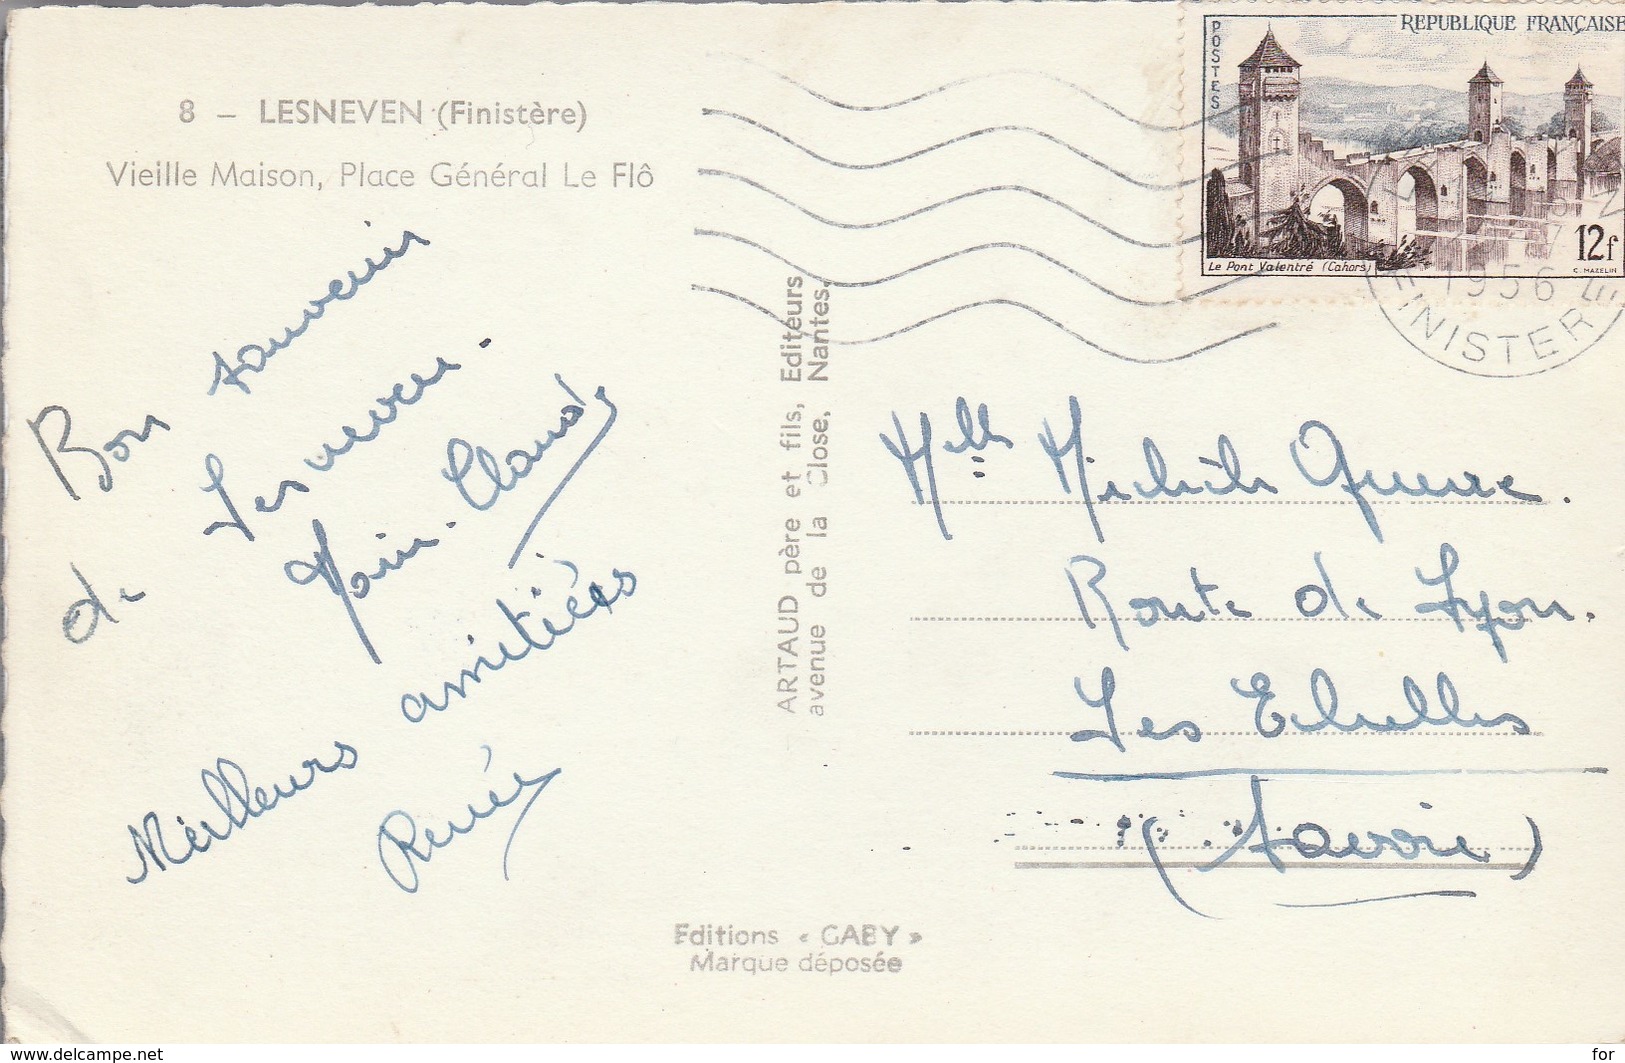 8 – LESNEVEN (Finistère)
Vieille Maison, Place Général Le Flô
Bon souvenir
de Lesneven.
Claude
Meilleurs amitiées
Renée
ARTAUD père et fils, Editeurs
avenue de la Close, Nantes.
Editions « GABY »
Marque déposée
POSTES
REPUBLIQUE FRANÇAISE
Le Pont Valentré (Cahors)
12f
C. MAZELIN
1956
FINISTERE
Melle Michèle
Route de Lyon.
Les Echelles
(Savoie)
www.delcampe.net
for